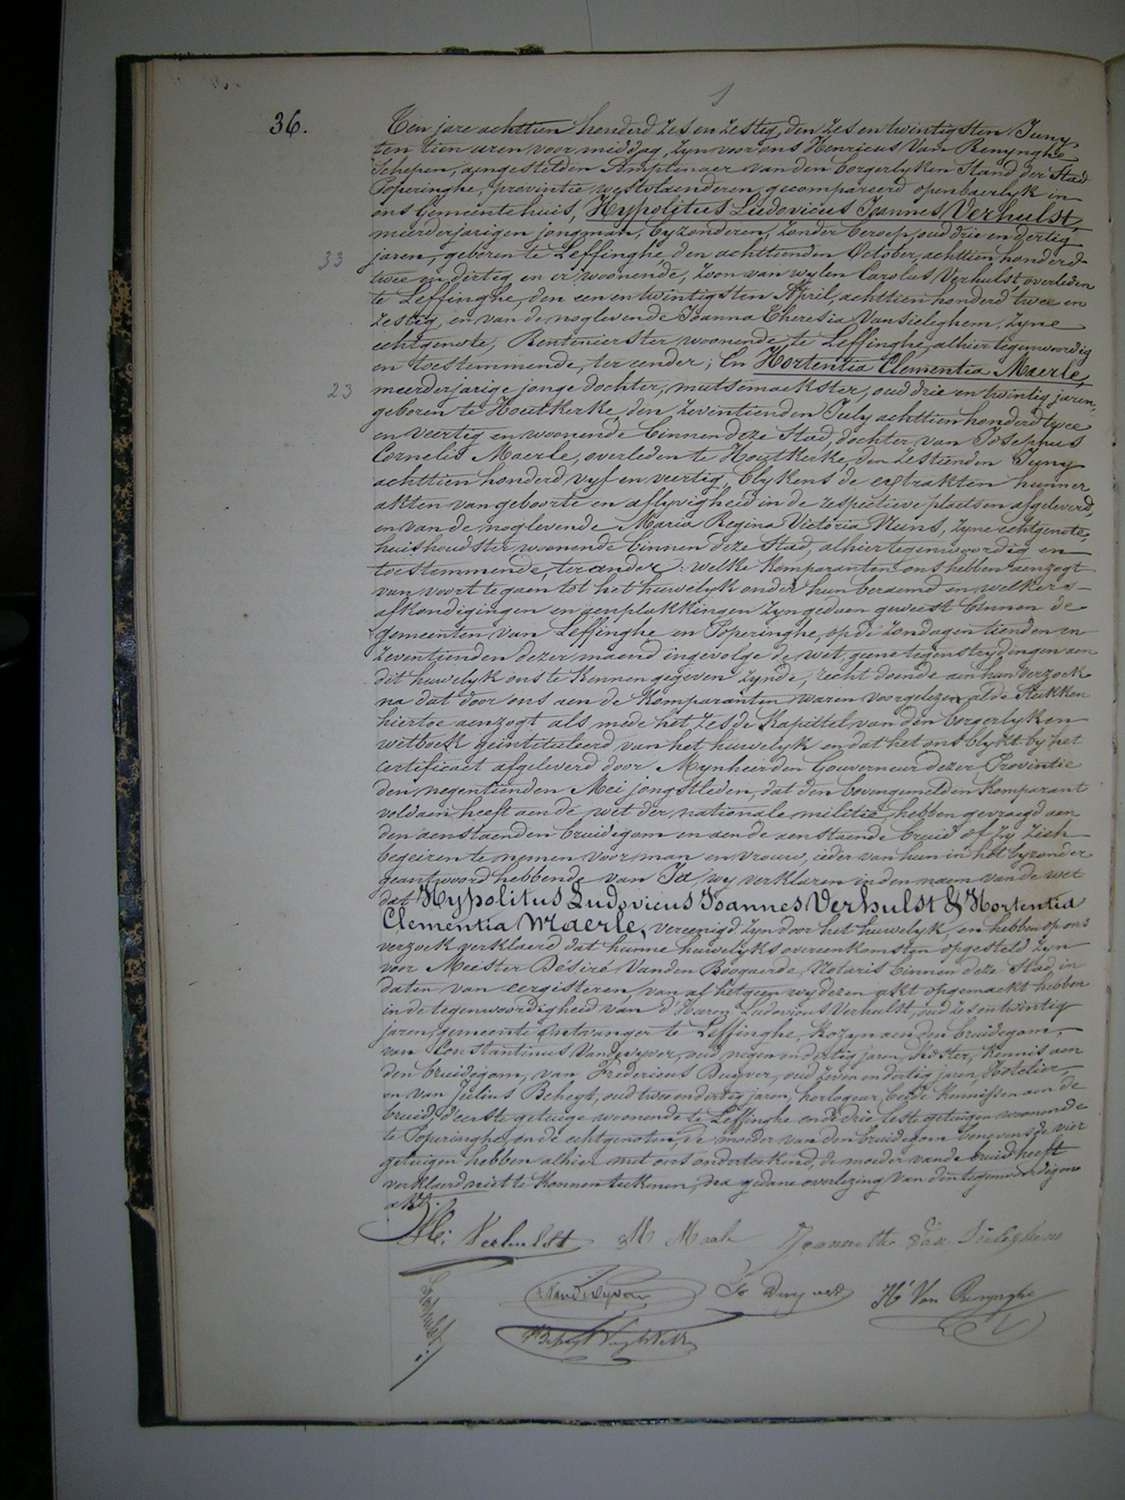 36.
Ten jare achttien honderd zes en zestig, den zes en twintigsten Juny
ten tien uren voor middag, zyn voor ons Henricus Van Renynghe
Schepen, aengestelden Amptenaer van den Borgerlyken Stand der Stad
Poperinghe, provintie westvlaenderen, gecompareerd openbaerlyk in
ons Gemeentehuis, Hypolitus Ludovicus Joannes Verhulst,
meerderjarigen jongman, byzonderen, zonder beroep, oud drie en dertig
33
jaren, geboren te Leffinghe den achttienden October achttien honderd
twee en dertig en er woonende, zoon van wylen Carolus Verhulst, overleden
te Leffinghe, den een en twintigsten April, achttien honderd twee en
zestig, en van de noglevende Joanna Theresia Vansieleghem, zyne
echtgenote, Rentenierster woonende te Leffinghe, alhier tegenwoordig
en toestemmende, ter eender; En Hortentia Clementia Maerle,
23
meerderjarige jonge dochter, mutsemaekster, oud drie en twintig jaren,
geboren te Houtkerke, den zeventienden July achttien honderd twee
en veertig en woonende binnen deze Stad, dochter van Josephus
Cornelis Maerle, overleden te Houtkerke, den zestienden Juny
achttien honderd vyf en veertig, blykens de extrakten hunner
akten van geboorte en aflyvigheid in de respectieve plaetsen afgeleverd,
en van de noglevende Maria Regina Victoria Nuns, zyne echtgenote,
huishoudster woonende binnen deze Stad, alhier tegenwoordig en
toestemmende, ter ander: welke komparanten ons hebben aenzogt
van voort te gaen tot het huwelyk onder hun beraemd en welkers
afkondigingen en aenplakkingen zyn gedaen geweest binnen de
gemeenten van Leffinghe en Poperinghe, op de zondagen tienden en
zeventienden dezer maend ingevolge de wet geene tegenstrydingen aen
dit huwelyk ons te kennen gegeven zynde, recht doende aen hun verzoek
na dat door ons aen de Komparanten waren voorgelezen al de Stukken
hiertoe aenzogt als mede het zesde Kapittel van den borgerlyken
wetboek geintituleerd van het huwelyk en dat het ons blykt by het
certificaet afgeleverd door Mynheer den Gouverneur dezer Provintie
den negentienden Mei jongstleden, dat den bovengemelden Komparant
voldaen heeft aen de wet der nationale militie, hebben gevraegd aen
den aenstaenden bruidegom en aen de aenstaende bruid of zy zich
begeiren te nemen voor man en vrouw, ieder van hun in het byzonder
geantwoord hebbende van Ja, wy verklaren in den naem van de wet
dat Hypolitus Ludovicus Joannes Verhulst & Hortentia
Clementia Maerle, vereenigd zyn door het huwelyk, en hebben op ons
verzoek verklaerd dat hunne huwelyks overeenkomsten opgesteld zyn
voor Meester Désiré Vanden Boogaerde, Notaris binnen deze Stad, in
daten van eergisteren, van al hetgeen wy dezen akt opgemaekt hebben
in de tegenwoordigheid van d'Heeren Ludovicus Verhulst, oud zes en twintig
jaren, gemeente ontvanger te Leffinghe, kozyn aen den bruidegom,
van Constantinus Vandewyver, oud negen en dertig jaren, koster, kennis aen
den bruidegom, van Fredericus Duyver, oud zeven en dertig jaren, Hotelier,
en van Julius Beheyt, oud twee en dertig jaren, horlogeur, beide kennissen aen de
bruid, d'eerste getuige woonende te Leffinghe en de drie leste getuigen woonende
te Poperinghe, en de echtgenoten, de moeder van den bruidegom benevens de vier
getuigen hebben alhier met ons onderteekend, de moeder van de bruid heeft
verklaerd niet te konnen teekenen, dra gedane overlezing van den tegenwoordigen
akt.
Verhulst Jeannette Van Sieleghem
Vandewyver H. Van Renynghe